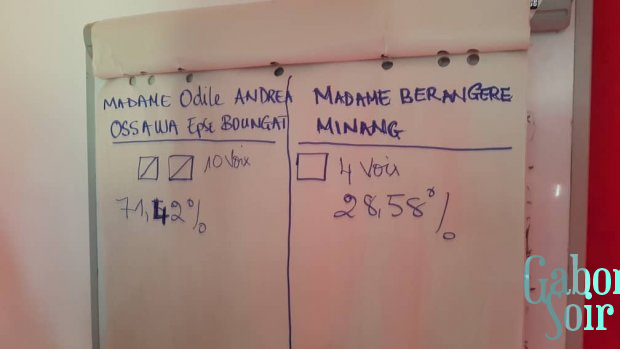 MADAME Odile ANDREA
OSSAWA Epse BOUNGAT
10 Voix
71,42%
MADAME BERANGERE
MINANG
4 Voix
28,58%
Gabon
Soir